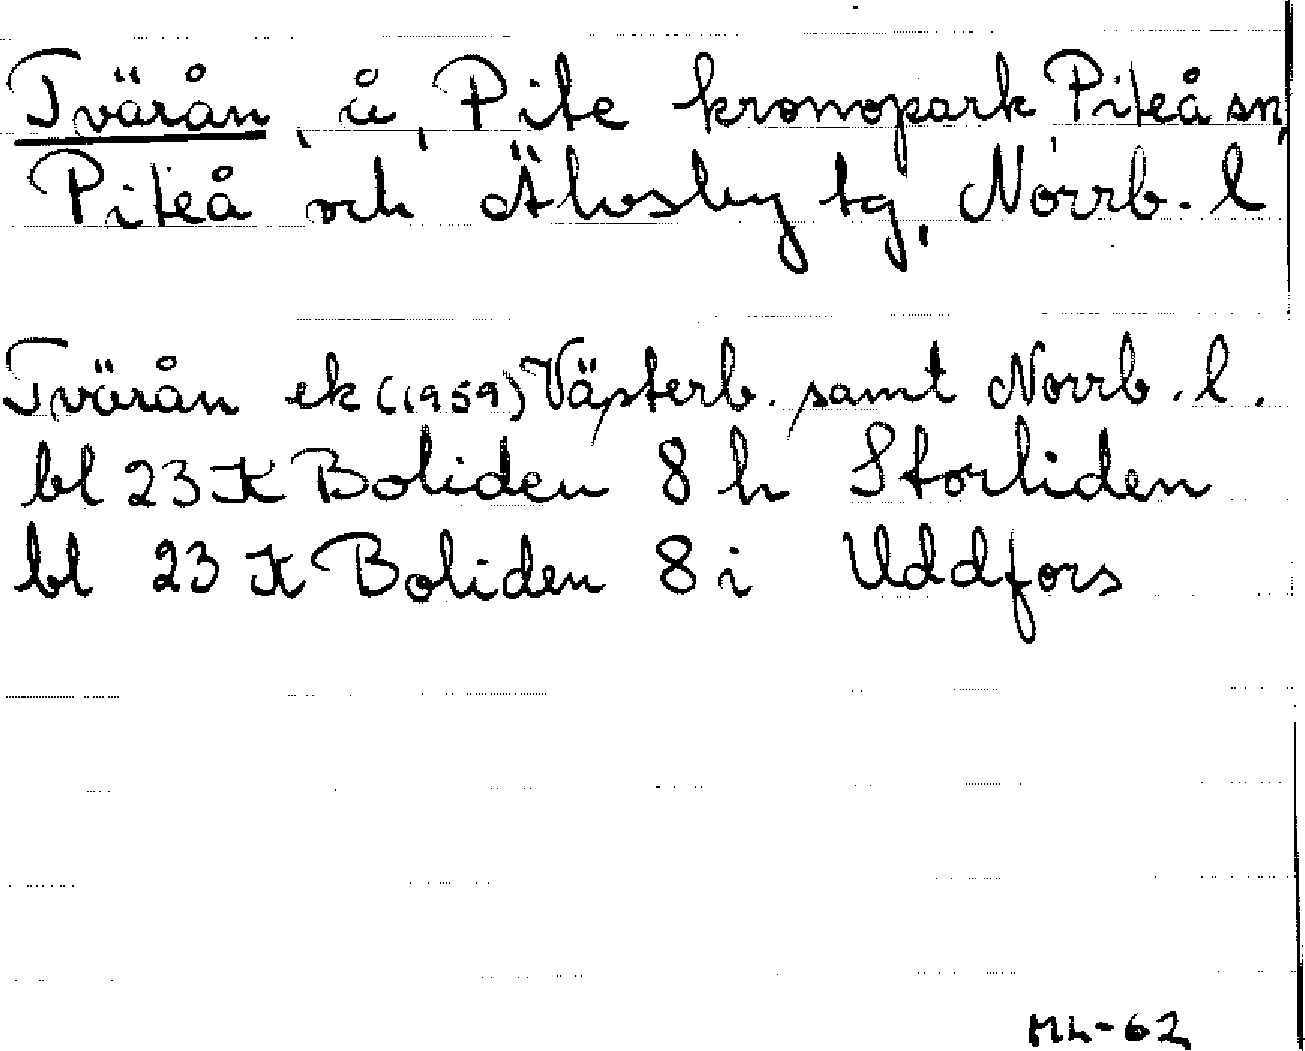 Tvärån, å, Pite kronopark, Piteå sn,
Piteå och Älvsby tg, Norrb. l
Tvärån ek (1959) Västerb. samt Norrb. l.
bl 23 K Boliden 8 h Storliden
bl 23 K Boliden 8 i Uddfors
ML-62